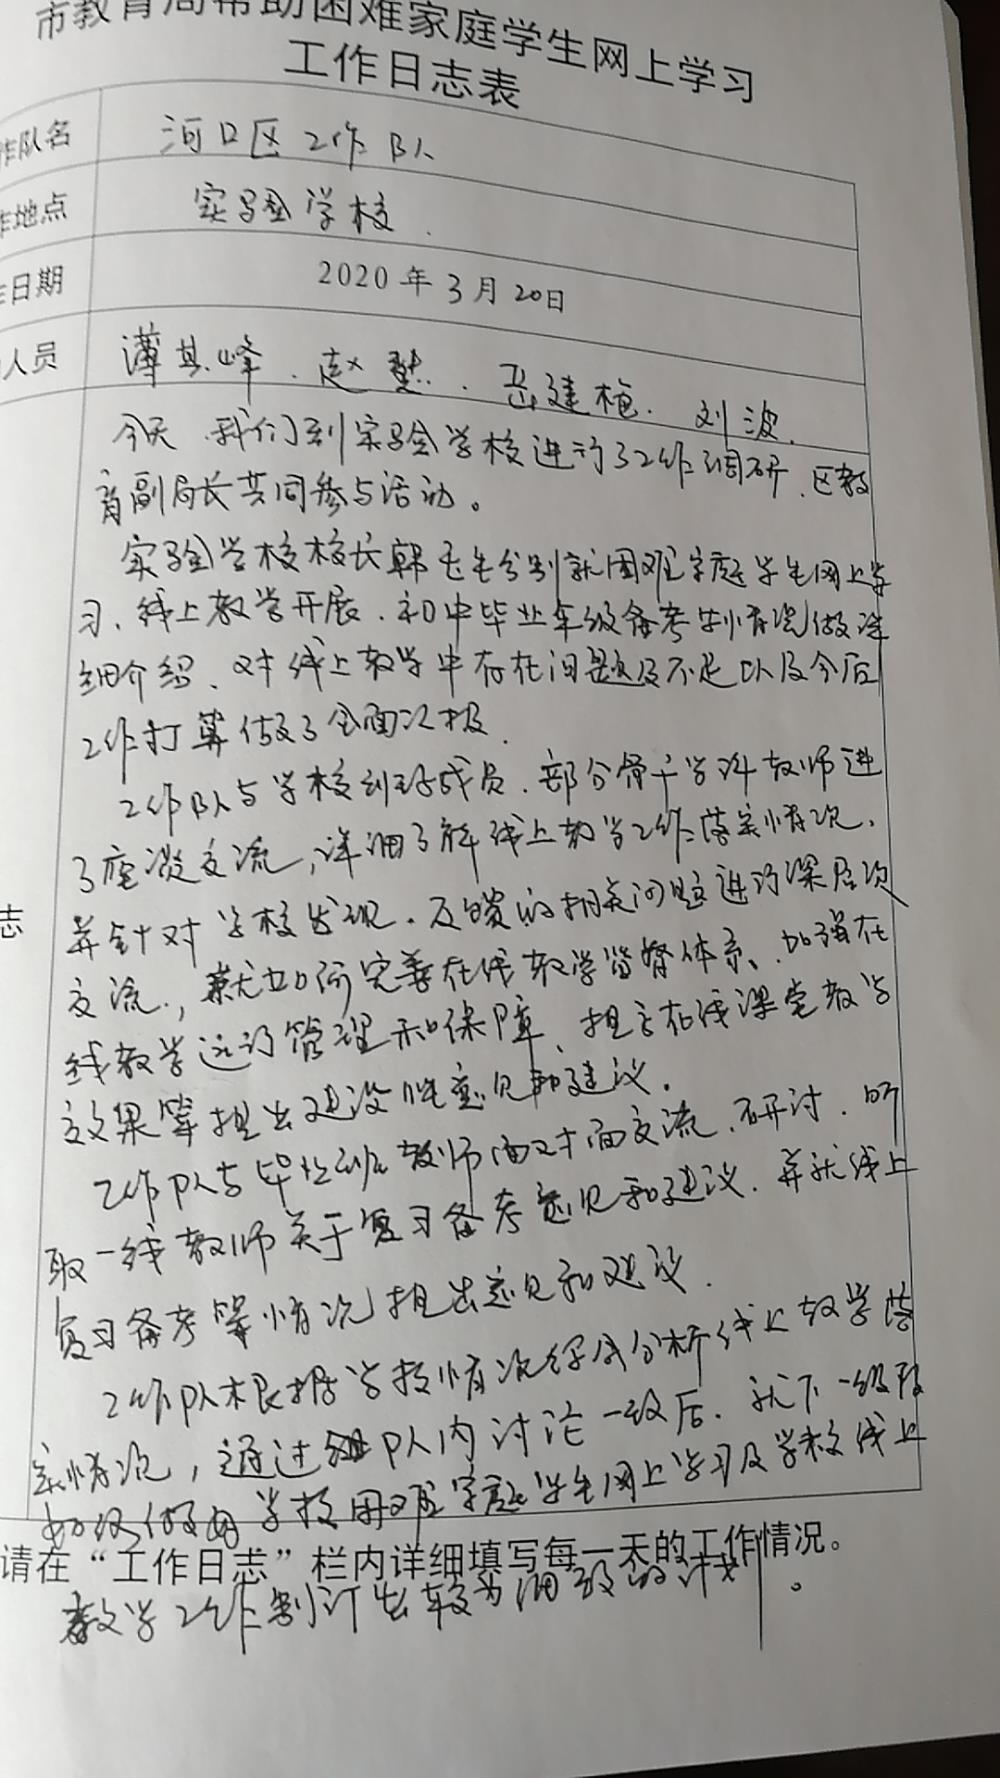 市教育局帮助困难家庭学生网上学习
工作日志表
作队名 河口区工作队
作地点 实验学校.
作日期 2020年3月20日
人员 薄其峰、赵慧、岳建梅、刘波.
今天,我们到实验学校进行了工作调研、区教
育副局长共同参与活动。
实验学校校长韩 分别就困难家庭学生网上学
习、线上教学开展、初中毕业年级备考 情况做详
细介绍、对线上教学中存在问题及不足以及今后
工作打算做了全面汇报.
工作队与学校班子成员、部分骨干学科教师进
了座谈交流,详细了解线上教学工作落实情况、
志
并针对学校发现、反馈的相关问题进行深层次
交流.,就如何完善在线教学监督体系、加强在
线教学运行管理和保障、提高在线课堂教学
效果等提出建设性意见和建议.
工作队与毕业班教师面对面交流、研讨、听
取一线教师关于复习备考意见和建议、并就线上
复习备考等情况提出意见和建议.
工作队根据学校情况综合分析线上教学落
实情况,通过 队内讨论一致后、就下一级段
如何做好学校困难家庭学生网上学习及学校线上
请在“工作日志”栏内详细填写每一天的工作情况。
教学工作制订出较为细致的计划。